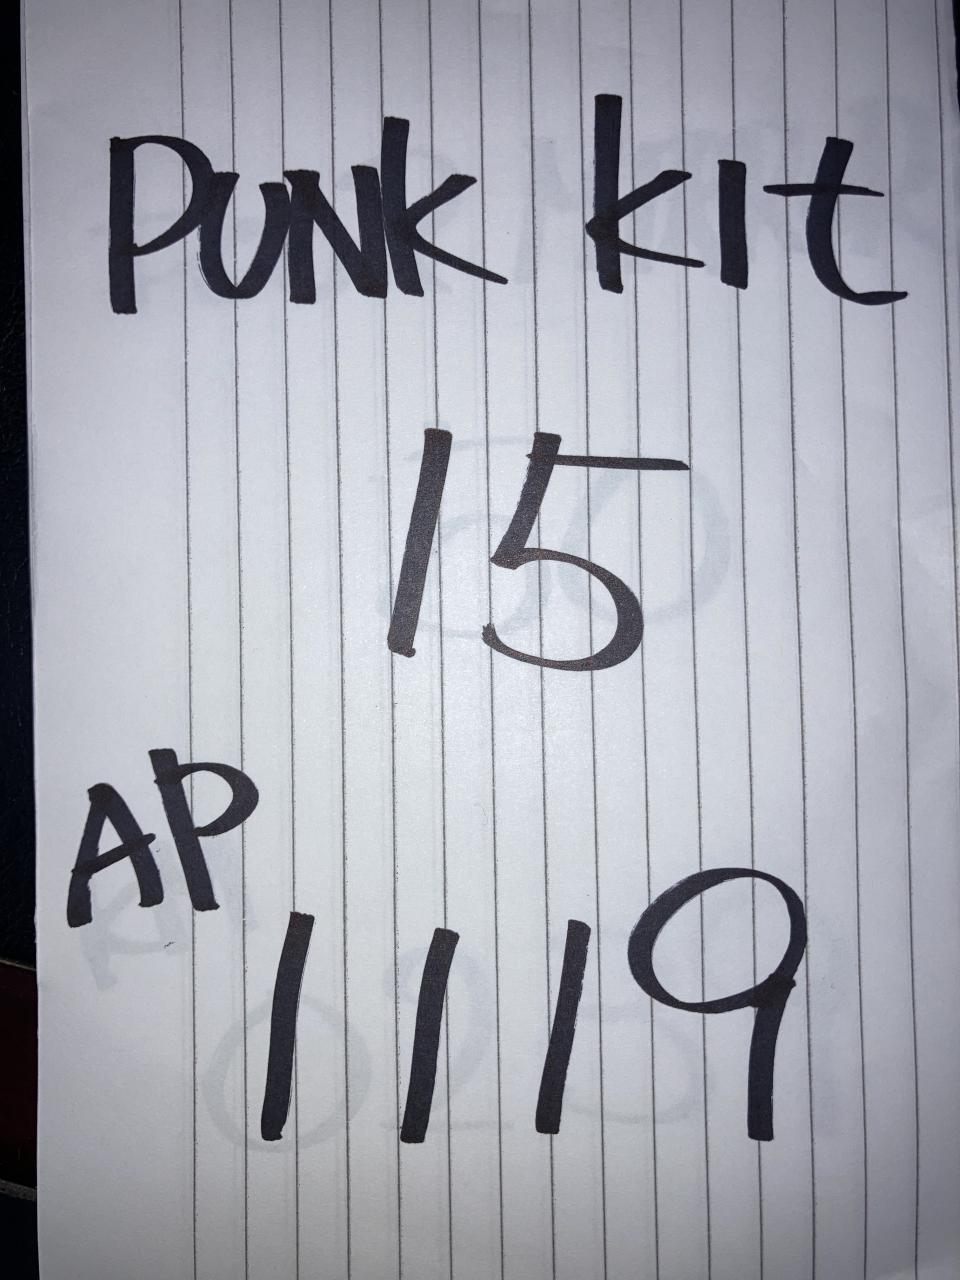 PUNK kit
15
AP
1119